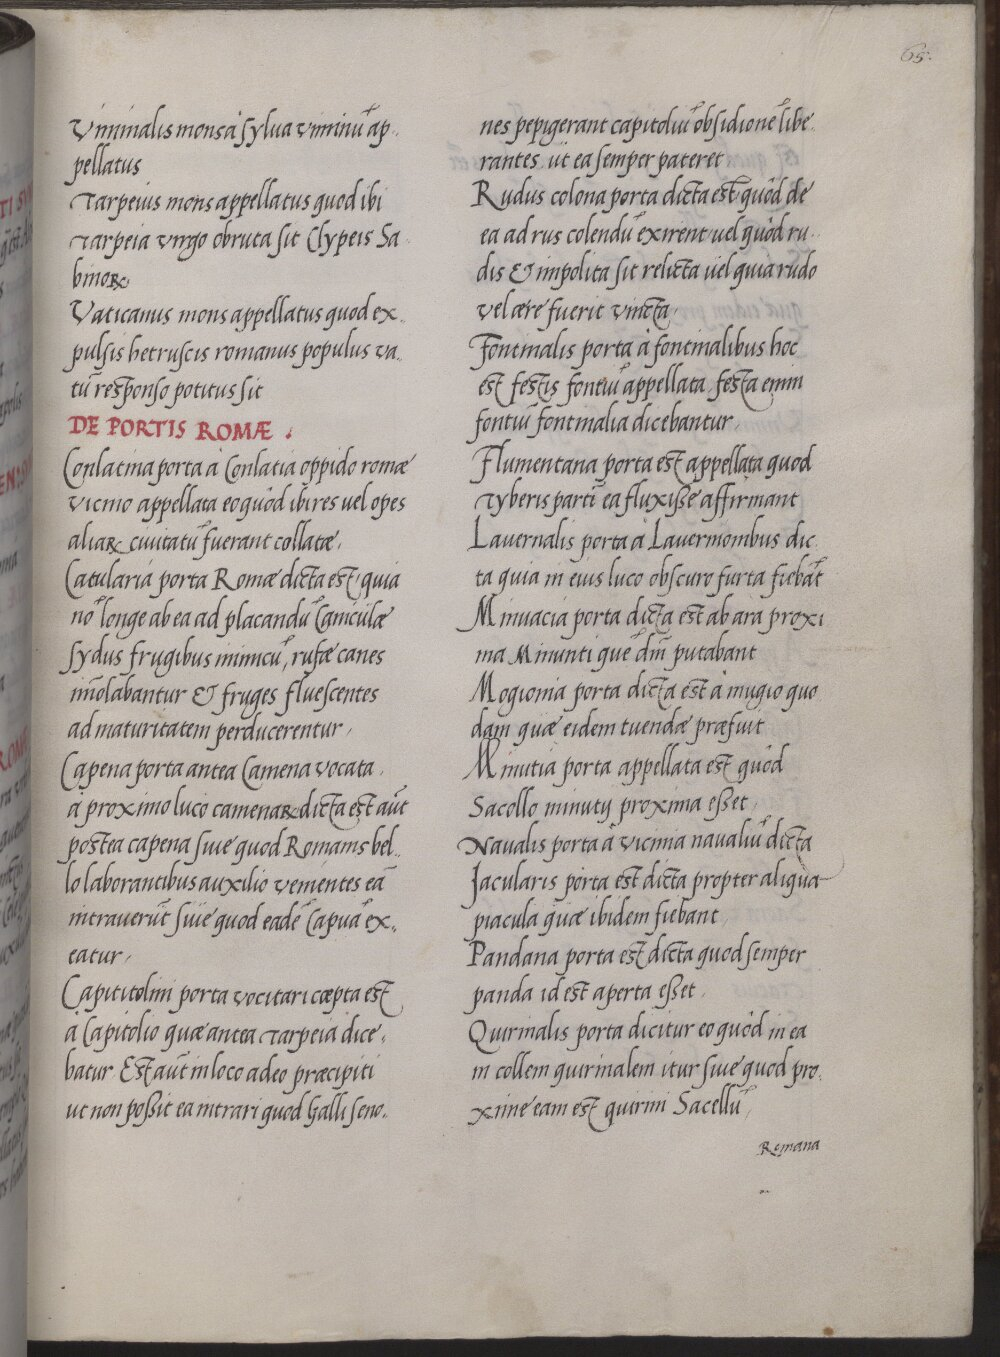 65.
Viminalis mons à sylua viminū ap-
pellatus
Tarpeius mons appellatus quod ibi
Tarpeia virgo obruta sit Clypeis Sa
binoꝝ
Vaticanus mons appellatus quod ex-
pulsis hetruscis romanus populus va-
tū responso potitus sit
DE PORTIS ROMÆ .
Conlatina porta à Conlatia oppido romæ
vicino appellata eo quòd ibi res uel opes
aliaꝝ ciuitatū fuerant collatæ,
Catularia porta Romæ dicta est, quia
nō longe ab ea ad placandū Caniculæ
sydus frugibus inimicū, rufæ canes
im̄olabantur & fruges fluescentes
ad maturitatem perducerentur,
Capena porta antea Camena vocata,
à proximo luco camenaꝝ dicta est aūt
postea capena siue quod Romanis bel-
lo laborantibus auxilio venientes eā
intrauerūt siue quod eadē Capuā ex-
eatur,
Capititolini porta vocitari cœpta est
à Capitolio quæ antea Tarpeia dice-
batur Est aūt in loco adeo præcipiti
ut non poßit ea intrari quod Galli seno-
nes pepigerant capitoliū obsidionē libe-
rantes ut ea semper pateret
Rudus colona porta dicta est quòd de
ea ad rus colendū exirent uel quòd ru-
dis & impolita sit relicta uel quia rudo
vel ære fuerit vincta,
Fontinalis porta à fontinalibus hoc
est festis fontiū appellata, festa enim
fontiū fontinalia dicebantur,
Flumentana porta est appellata quod
Tyberis parti ea fluxiße affirmant
Lauernalis porta à Lauernionibus dic
ta quia in eius luco obscuro furta fiebāt
Minuacia porta dicta est ab ara proxi
ma Minunti quē dm̄ putabant
Mogionia porta dicta est à mugio quo
dam quæ eidem tuendæ præfuit
Minutia porta appellata est quòd
Sacollo minutij proxima eßet,
Naualis porta à vicinia naualiū dicta
Jacularis porta est dicta propter aliqua
piacula quæ ibidem fiebant
Pandana porta est dicta quod semper
panda id est aperta eßet,
Quirinalis porta dicitur eo quòd in ea
in collem quirinalem itur siue quod pro-
xime eam est quirini Sacellū,
Romana